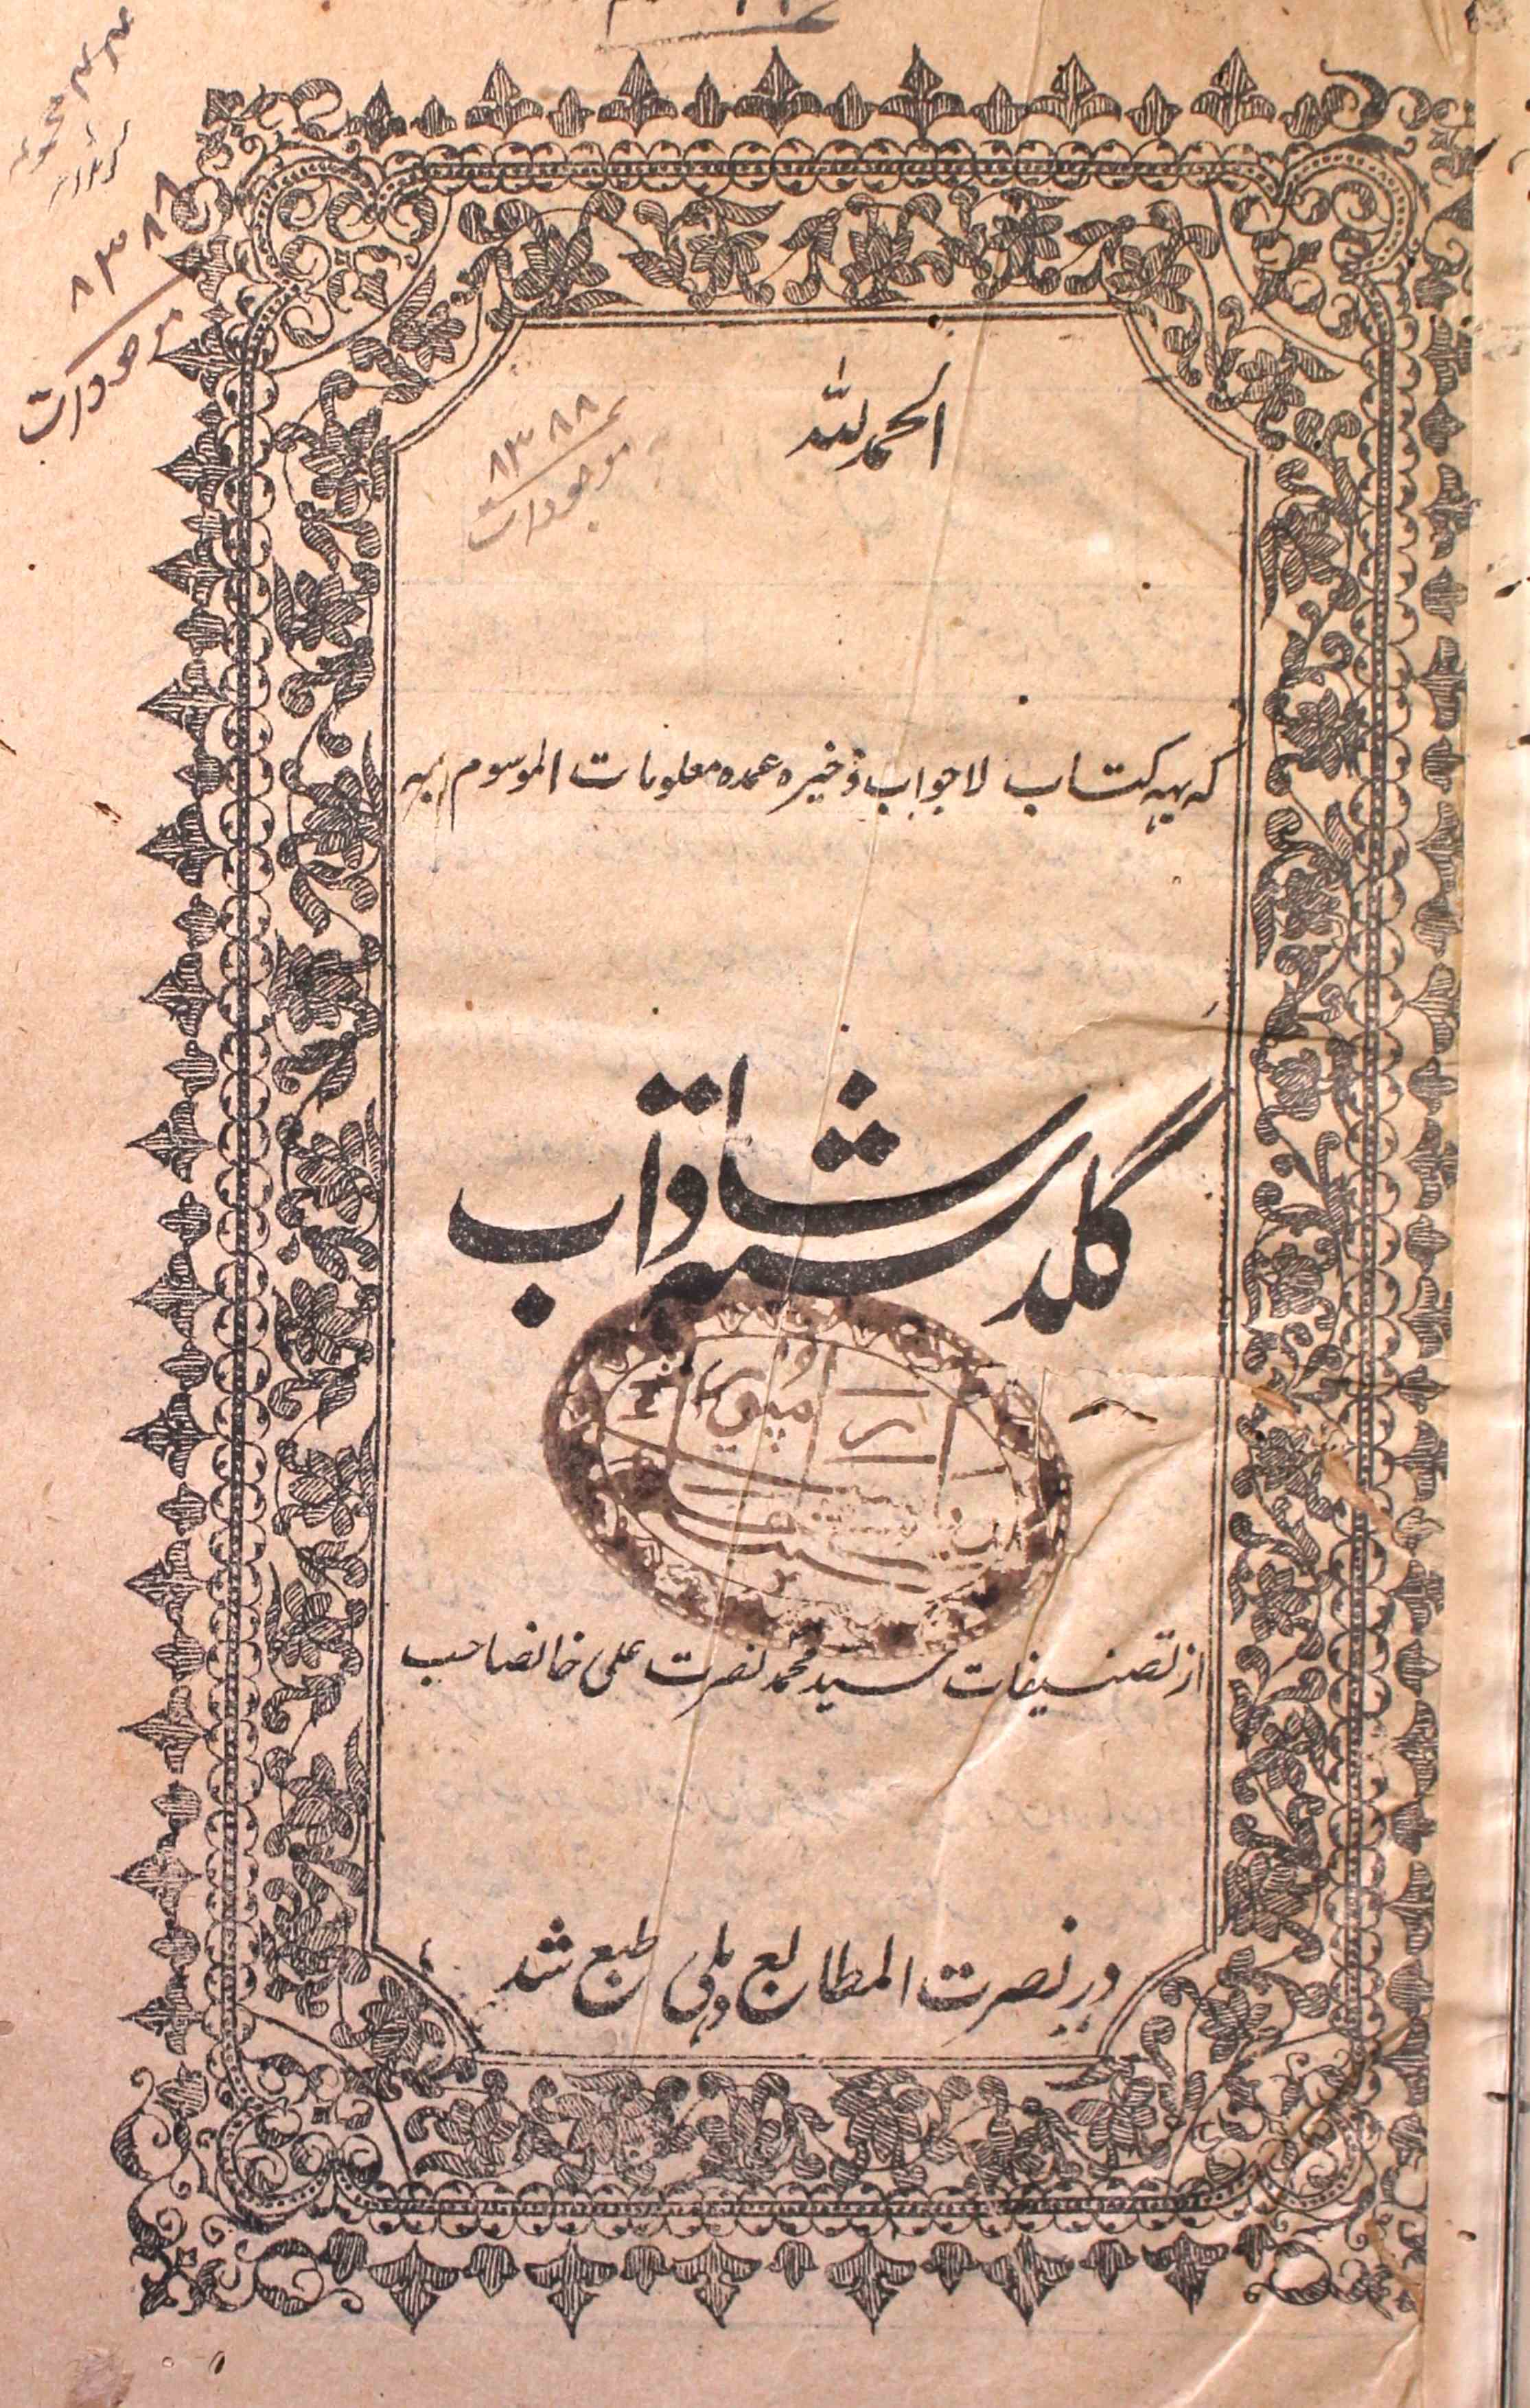 ۸۳۸۸
موجودات
الحمدللہ
۸۳۸۸
موجودات
کہ یہہ کتاب لاجواب ذخیرہ عمدہ معلومات الموسوم بہ
گلدستہ شاداب
رامپور
از تصنیفات سید محمد نصرت علی خانصاحب
در نصرت المطابع دہلی طبع شد